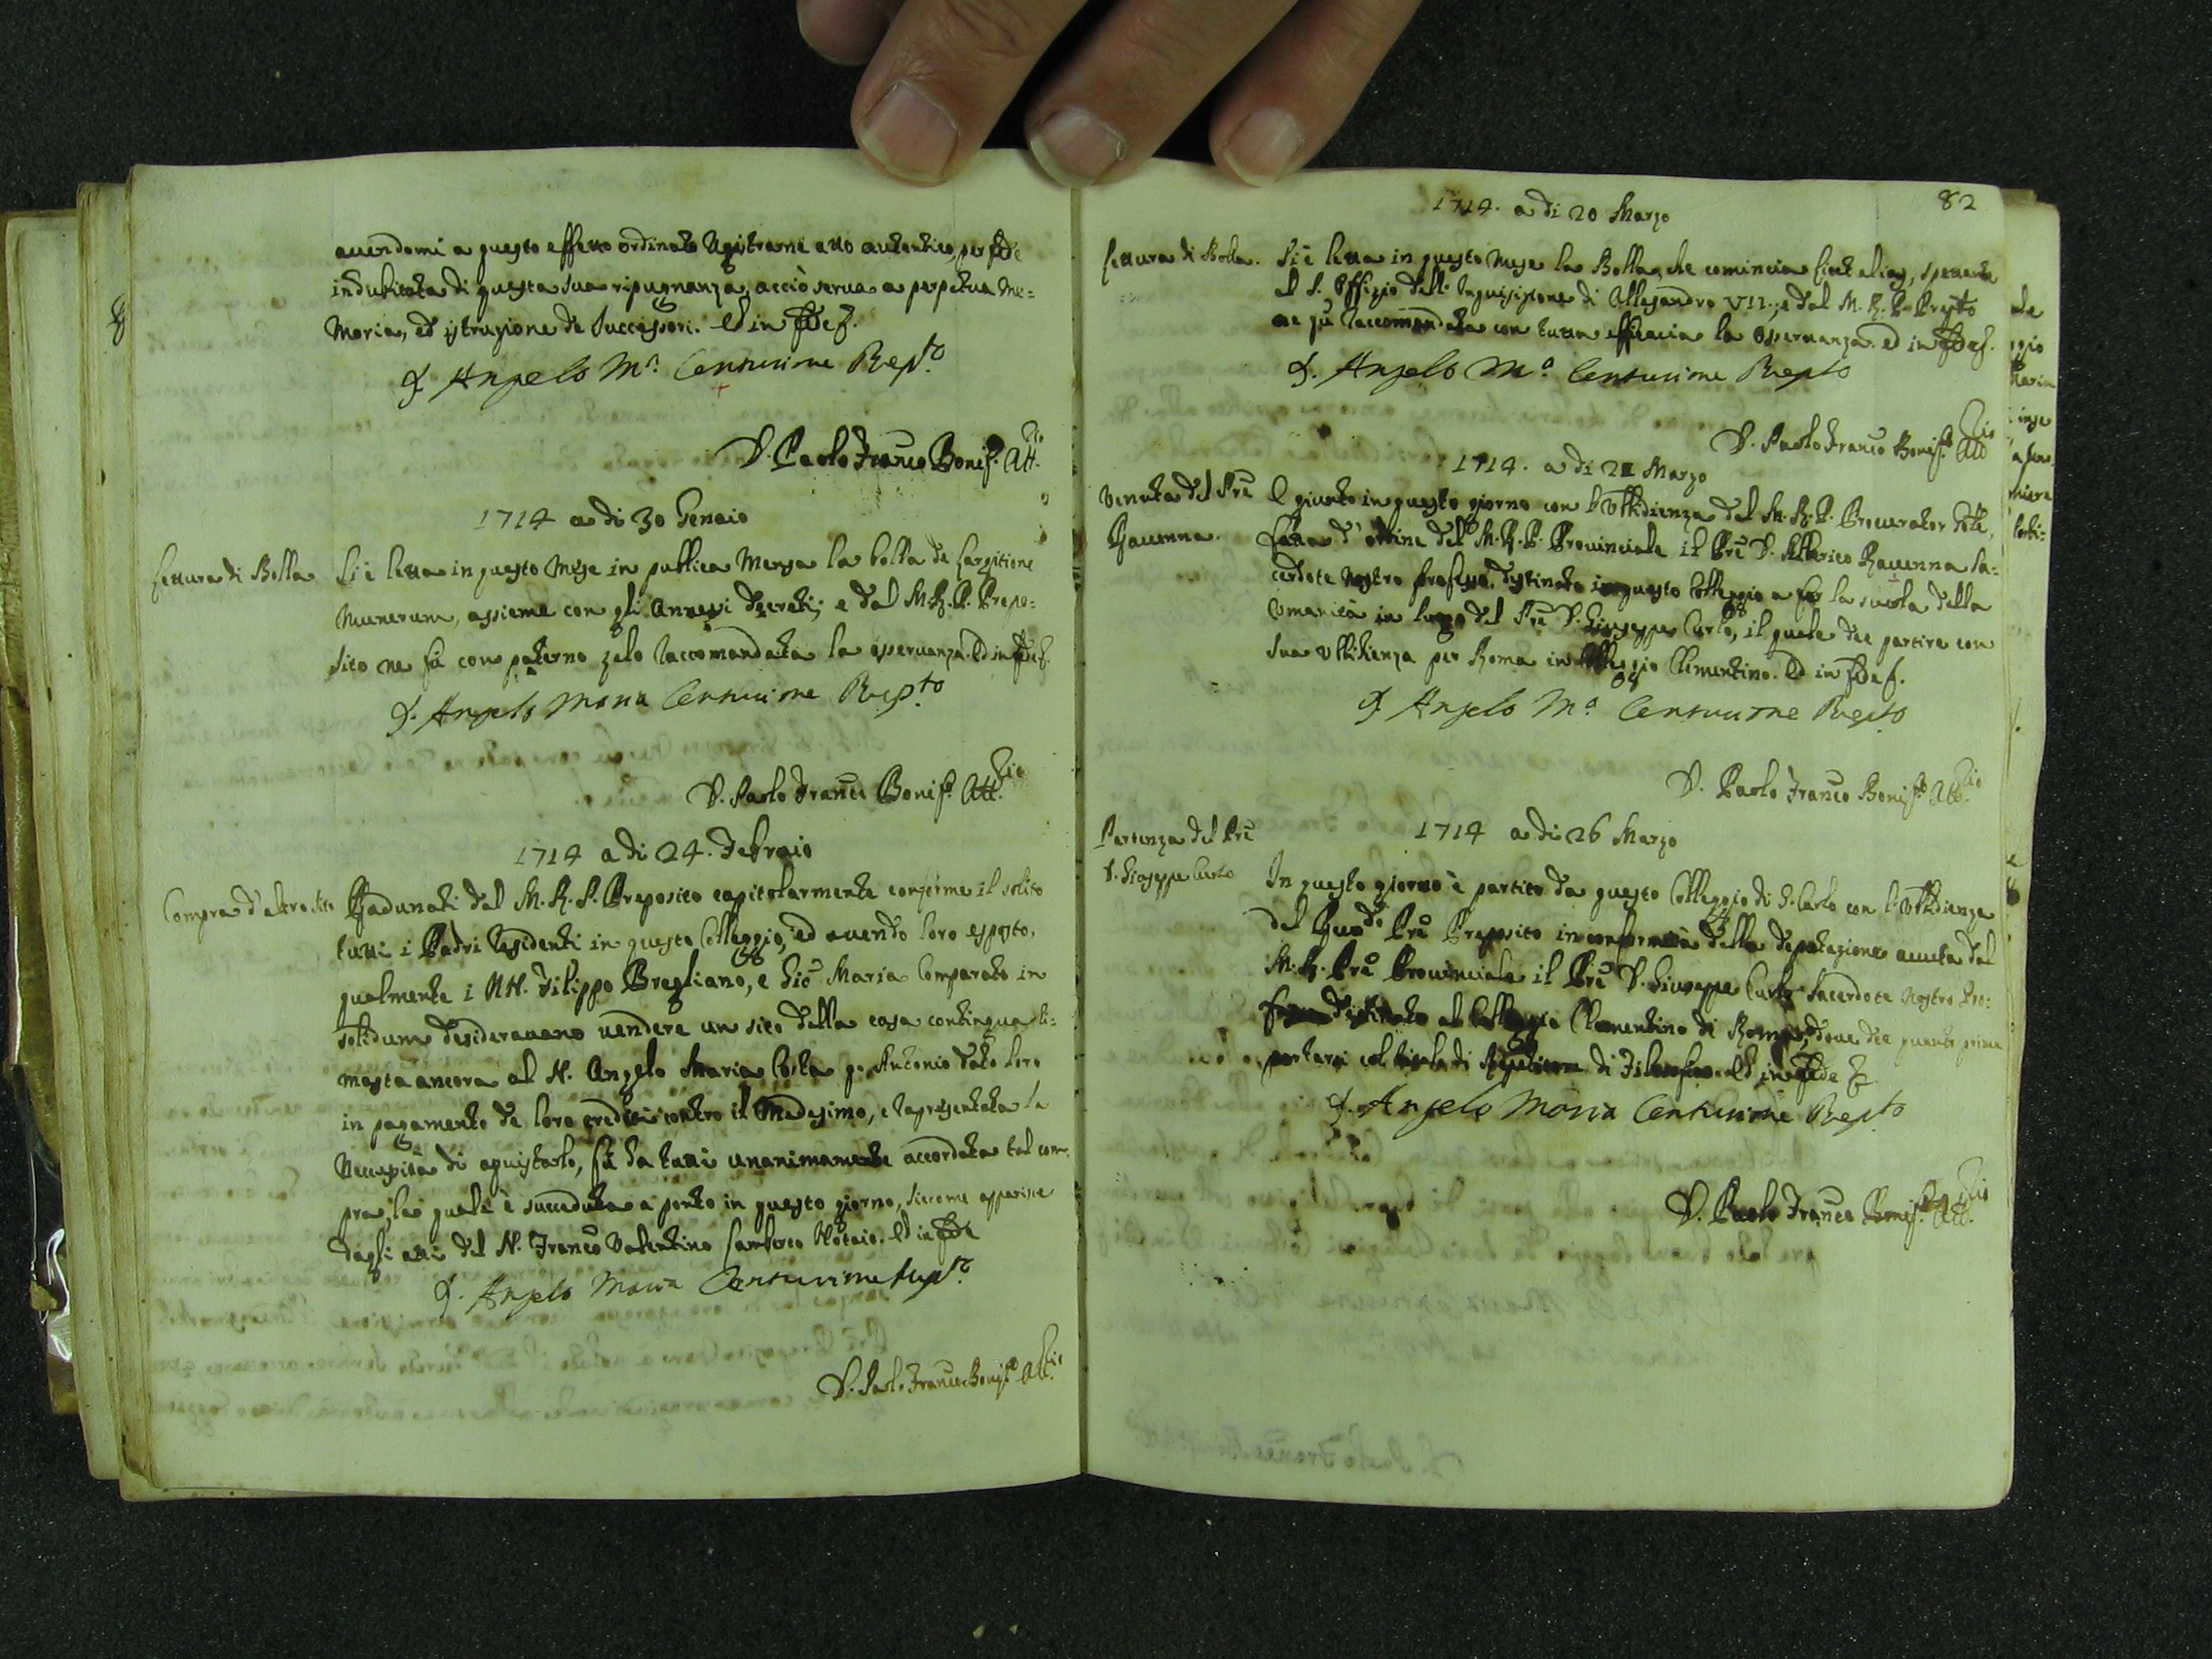 avendomi a questo effetto ordinato registrarne atto autentico, per fede
indubitata di questa sua ripugnanza, acciò serva a perpetua me=
moria, ed istruzione de Successori. Ed in fede &.
D. Angelo M.ª Centurione Prep.to
D. Paolo Franco Bonif.º Att.rio
1714 a di 30 Genaio
Lettura di Bolla
Si è letta in questo mese in publica mensa la bolla de largitione
munerum, assieme con gli annessi decreti; e dal M. R. P. Prepo=
sito ne fà con paterno zelo raccomandata la osservanza. Ed in fede &.
D. Angelo Maria Centurione Prep.to
D. Paolo Franco Bonif.º Att.rio
1714 a di 24. Febraio
Compra d'altro sito
Radunati dal M. R. P. Preposito capitolarmente conforme il solito
tutti i Padri residenti in questo Colleggio, ed avendo loro esposto,
qualmente i MM. Filippo Bregliano, e Gio Maria Comparato in
solidum desideravano vendere un sito della casa contingua ri=
masta ancora al M. Angelo Maria Costa q. Antonio dato loro
in pagamento de loro crediti contro il Medesimo, e rapresentata la
necessità di aquistarlo, fù da tutti unanimamente accordata tal com=
pra, la quale è succeduta a ponto in questo giorno, siccome apparisce
dagli atti del M. Franco Valentino Notaio. Ed in fede
D. Angelo Maria Centurione Prep.to
D. Paolo Franco Bonif.º Att.rio
82
1714. a di 20 Marzo
Lettura di Bolla.
Si è letta in questo mese la Bolla, che comincia sicut alias, spettante
al S. Offizio dell' Inquisizione di Allesandro VII., e dal M. R. P. Prep.to
ne fù raccomandata con tutta efficacia la osservanza. ed in fede &.
D. Angelo M.ª Centurione Prep.to
D. Paolo Franco Bonif.º Att.rio
1714. a di 21 Marzo
Venuta del Prē
Ravenna.
È giunto in questo giorno con l'Ubbidienza del M. R. P. Procurator Gñle,
fatta d'ordine del M. R. P. Provinciale il Prē D. Ravenna Sa=
cerdote nostro professo, destinato in questo Colleggio a far la scuola della
Umanità in luogo del Prē D. Giuseppe Curlo, il quale dee partire con
sua Ubbidienza per Roma in Colleggio Clementino. Ed in fede &.
D. Angelo M.ª Centurione Prep.to
D. Paolo Franco Bonif.º Att.rio
1714 a di 26 Marzo
Partenza del Prē
D. Giuseppe Curlo
In questo giorno è partito da questo Colleggio di S. Carlo con l'Ubbidienza
del Prē Preposito in conformità della deputazione avuta dal
M. R. Prē Provinciale il Prē D. Giuseppe Curlo Sacerdote nostro Pro=
fesso destinato al Colleggio Clementino di Roma, dove dee quanto prima
portarsi col titolo di Ripetitore di Filosofia. Ed in fede &
D. Angelo Maria Centurione Prep.to
D. Paolo Franco Bonif.º Att.rio